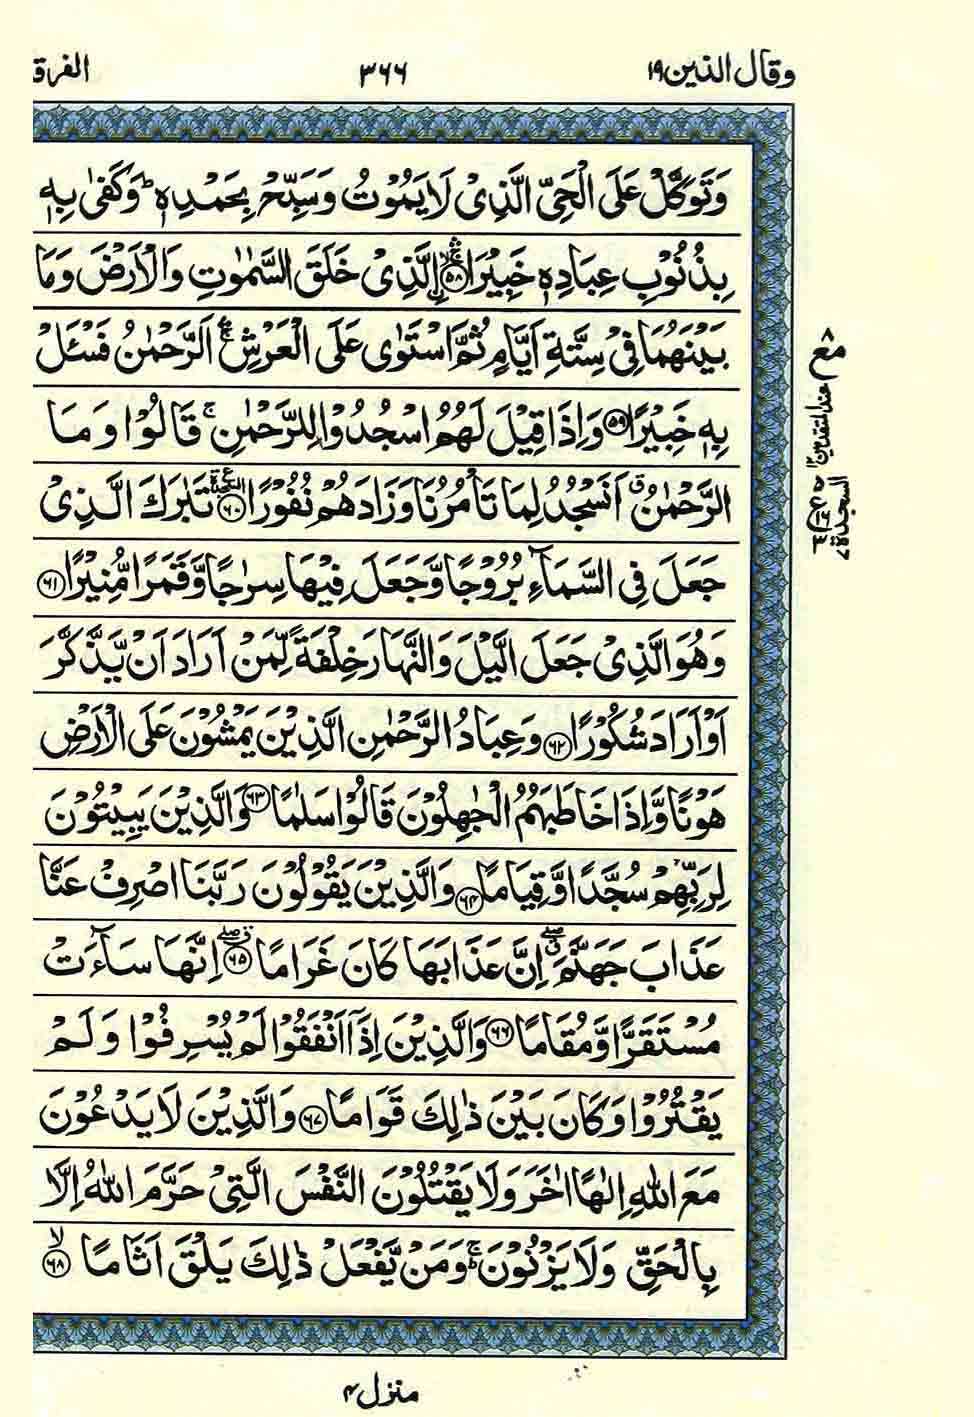 وقال الذين ١٩
٣٦٦
الفرق
وَتَوَكَّلْ عَلَى الْحَيِّ الَّذِيْ لَا يَمُوْتُ وَسَبِّحْ بِحَمْدِهٖ ؕ وَكَفٰى بِهٖ
بِذُنُوْبِ عِبَادِهٖ خَبِيْرَا ۙۛۚ ﴿٥٨﴾ الَّذِيْ خَلَقَ السَّمٰوٰتِ وَالْاَرْضَ وَمَا
بَيْنَهُمَا فِيْ سِتَّةِ اَيَّامٍ ثُمَّ اسْتَوٰى عَلَى الْعَرْشِ ۛۚ اَلرَّحْمٰنُ فَسْـَٔلْ
بِهٖ خَبِيْرًا ﴿٥٩﴾ وَاِذَا قِيْلَ لَهُمُ اسْجُدُوْا لِلرَّحْمٰنِ ۚ قَالُوْا وَمَا
الرَّحْمٰنُ ۗ اَنَسْجُدُ لِمَا تَاْمُرُنَا وَزَادَهُمْ نُفُوْرًا ﴿٦٠﴾ تَبٰرَكَ الَّذِيْ
جَعَلَ فِي السَّمَآءِ بُرُوْجًا وَّجَعَلَ فِيْهَا سِرٰجًا وَّقَمَرًا مُّنِيْرًا ﴿٦١﴾
وَهُوَ الَّذِيْ جَعَلَ الَّيْلَ وَالنَّهَارَ خِلْفَةً لِّمَنْ اَرَادَ اَنْ يَّذَّكَّرَ
اَوْ اَرَادَ شُكُوْرًا ﴿٦٢﴾ وَعِبَادُ الرَّحْمٰنِ الَّذِيْنَ يَمْشُوْنَ عَلَى الْاَرْضِ
هَوْنًا وَّاِذَا خَاطَبَهُمُ الْجٰهِلُوْنَ قَالُوْا سَلٰمًا ﴿٦٣﴾ وَالَّذِيْنَ يَبِيْتُوْنَ
لِرَبِّهِمْ سُجَّدًا وَّقِيَامًا ﴿٦٤﴾ وَالَّذِيْنَ يَقُوْلُوْنَ رَبَّنَا اصْرِفْ عَنَّا
عَذَابَ جَهَنَّمَ ۖ اِنَّ عَذَابَهَا كَانَ غَرَامًا ﴿٦٥﴾ اِنَّهَا سَآءَتْ
مُسْتَقَرًّا وَّمُقَامًا ﴿٦٦﴾ وَالَّذِيْنَ اِذَآ اَنْفَقُوْا لَمْ يُسْرِفُوْا وَلَمْ
يَقْتُرُوْا وَكَانَ بَيْنَ ذٰلِكَ قَوَامًا ﴿٦٧﴾ وَالَّذِيْنَ لَا يَدْعُوْنَ
مَعَ اللّٰهِ اِلٰهًا اٰخَرَ وَلَا يَقْتُلُوْنَ النَّفْسَ الَّتِيْ حَرَّمَ اللّٰهُ اِلَّا
بِالْحَقِّ وَلَا يَزْنُوْنَ ۚ وَمَنْ يَّفْعَلْ ذٰلِكَ يَلْقَ اَثَامًا ۙ﴿٦٨﴾
مع ٨
عند المتقدمين
السجدة ٧
منزل ٤